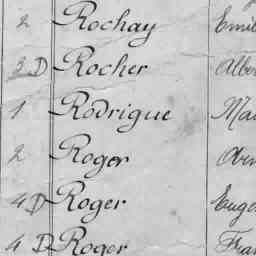 2 Rochay Emil
3 D Rocher Albe
1 Rodrigue Ma
2 Roger
4 D Roger Euge
4 D Roger Fra